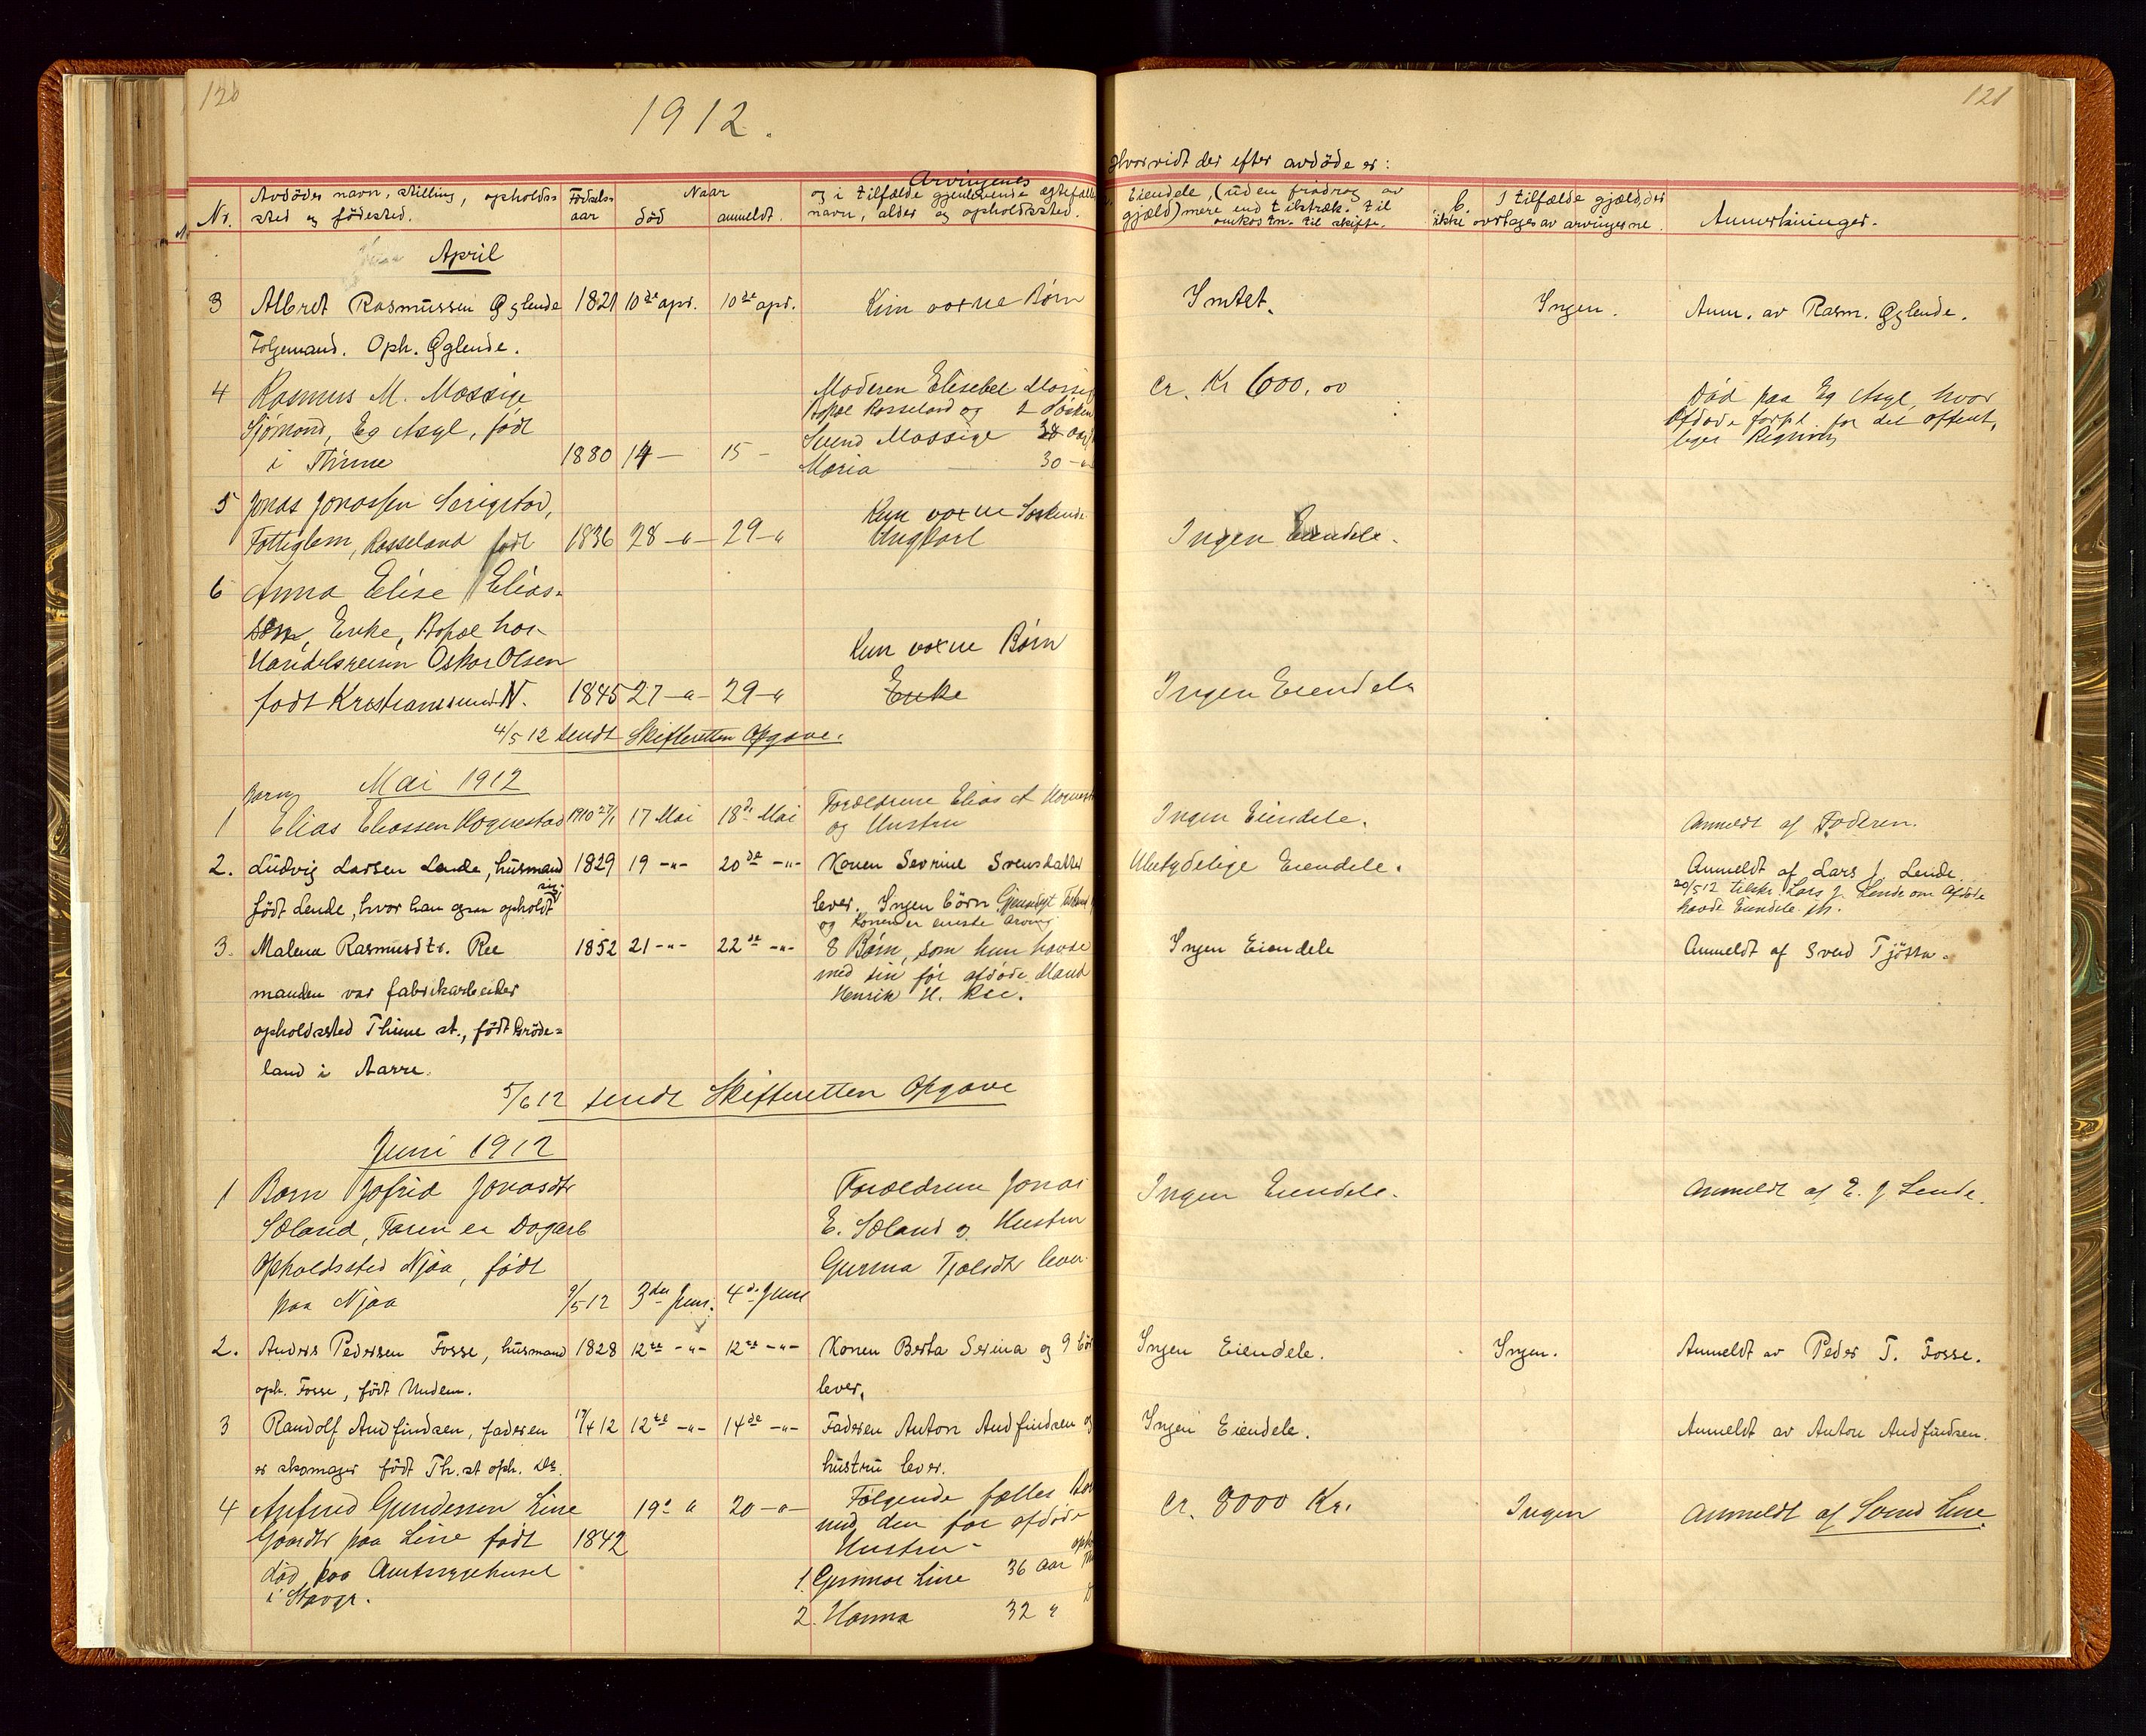 120
1912.
121
Hvorvidt der efter avdøde er:
Nr.
Avdødes navn, stilling, opholds-
sted og fødested.
Fødsels-
aar
Naar
død
anmeldt.
Arvingenes
og i tilfælde gjenlevende egtefælles
navn, alder og opholdssted.
Eiendele, (uden fradrag av
gjæld) mere end tilstræk. til
omkostn. til skifte.
b. I tilfælde gjæld, der
ikke overtages av arvingerne.
Anmerkninger.
April
3 Albret Rasmussen Øglende 1821 10de apr. 10de apr. Kun voxne Børn Intet. Ingen. Anm. av Rasm. Øglende.
Folgemand. Oph. Øglende.
4 Rasmus M. Mossige Moderen Elisebet Mossig cr. Kr 600,00 Død paa Eg Asyl, hvor
Sjømand, Eg Asyl, født Bopæl Rosseland og 2 Søsken Afdøde forpl. for det offent,
i Thime 1880 14 — 15 — Svend Mossige liges Regning
Maria — 30 -"-
5 Jonas Jonassen Serigstad, Kun voxne Søskende
Fattiglem, Rosseland født 1836 28 -"- 29 -"- Ungkarl Ingen Eiendele.
6 Anna Elise Elias-
sen, Enke, Bopæl hos
Handelsreisn Oskar Olsen Kun voxne Børn
født Kristianssund N. 1845 27 -"- 29 -"- Enke Ingen Eiendele
4/5 12 sendt Skifteretten Opgave.
Mai 1912
Barn
1 Elias Eliassen Hognestad 1910 27/1 17 Mai 18de Mai Forældrene Elias A Hognest Ingen Eiendele. Anmeldt af Faderen.
og Hustru
2. Ludvig Larsen Lende, husmand 1829 19 -"- 20de -"- Konen Sevrine Svensdatter Ubetydelige Eiendele. Anmeldt af Lars J. Lende.
født Lende, hvor han ogsaa opholdt sig. lever. Ingen børn 20/5 12 tilskr. Lars J. Lende om Afdøde
og Konen er eneste Arving havde Eiendele.
3. Malena Rasmusdtr. Ree 1852 21 -"- 22de -"- 8 Børn, som hun havde Ingen Eiendele Anmeldt af Sved Tjøtta.
manden var fabrikarbeider med sin før afdøde Mand
opholdssted Thime st., født Grøde= Henrik H. Ree.
land i Aarre.
5/6 12 sendt Skifteretten Opgave
Juni 1912
1 Barn Jofrid Jonasdtr Forældrene Jonas Ingen Eiendele. Anmeldt af E. J Lende.
Sæland, Faren er Dagarb E. Sæland og Hustru
Opholdssted Njaa, født Gurina lever
paa Njaa 9/5 12 3die Juni. 4de Juni
2. Anders Pedersen Fosse, husmand 1828 12te -"- 12te -"- Konen Berta Serina og 9 bør Ingen Eiendele. Ingen. Anmeldt av Peder T. Fosse.
oph. Fosse, født Undem. lever.
3 Randolf Andfindsen, faderen 17/4 12 12te -"- 14de -"- Faderen Anton Andfindsen og Ingen Eiendele. Anmeldt av Anton Andfindsen.
er skomager født Th. st oph. Do. hustru lever.
4 Anfind Gundersen Line 19de " 20 -"- Følgende fælles Bør cr. 8000 Kr. Ingen Anmeldt af Svend Line.
Gaardbr paa Line født 1842 med den før afdøde
død paa Amtssygehuset Hustru-
i Stavgr. 1. Gunnar Line 36 Aar
2. Hanna 32 "